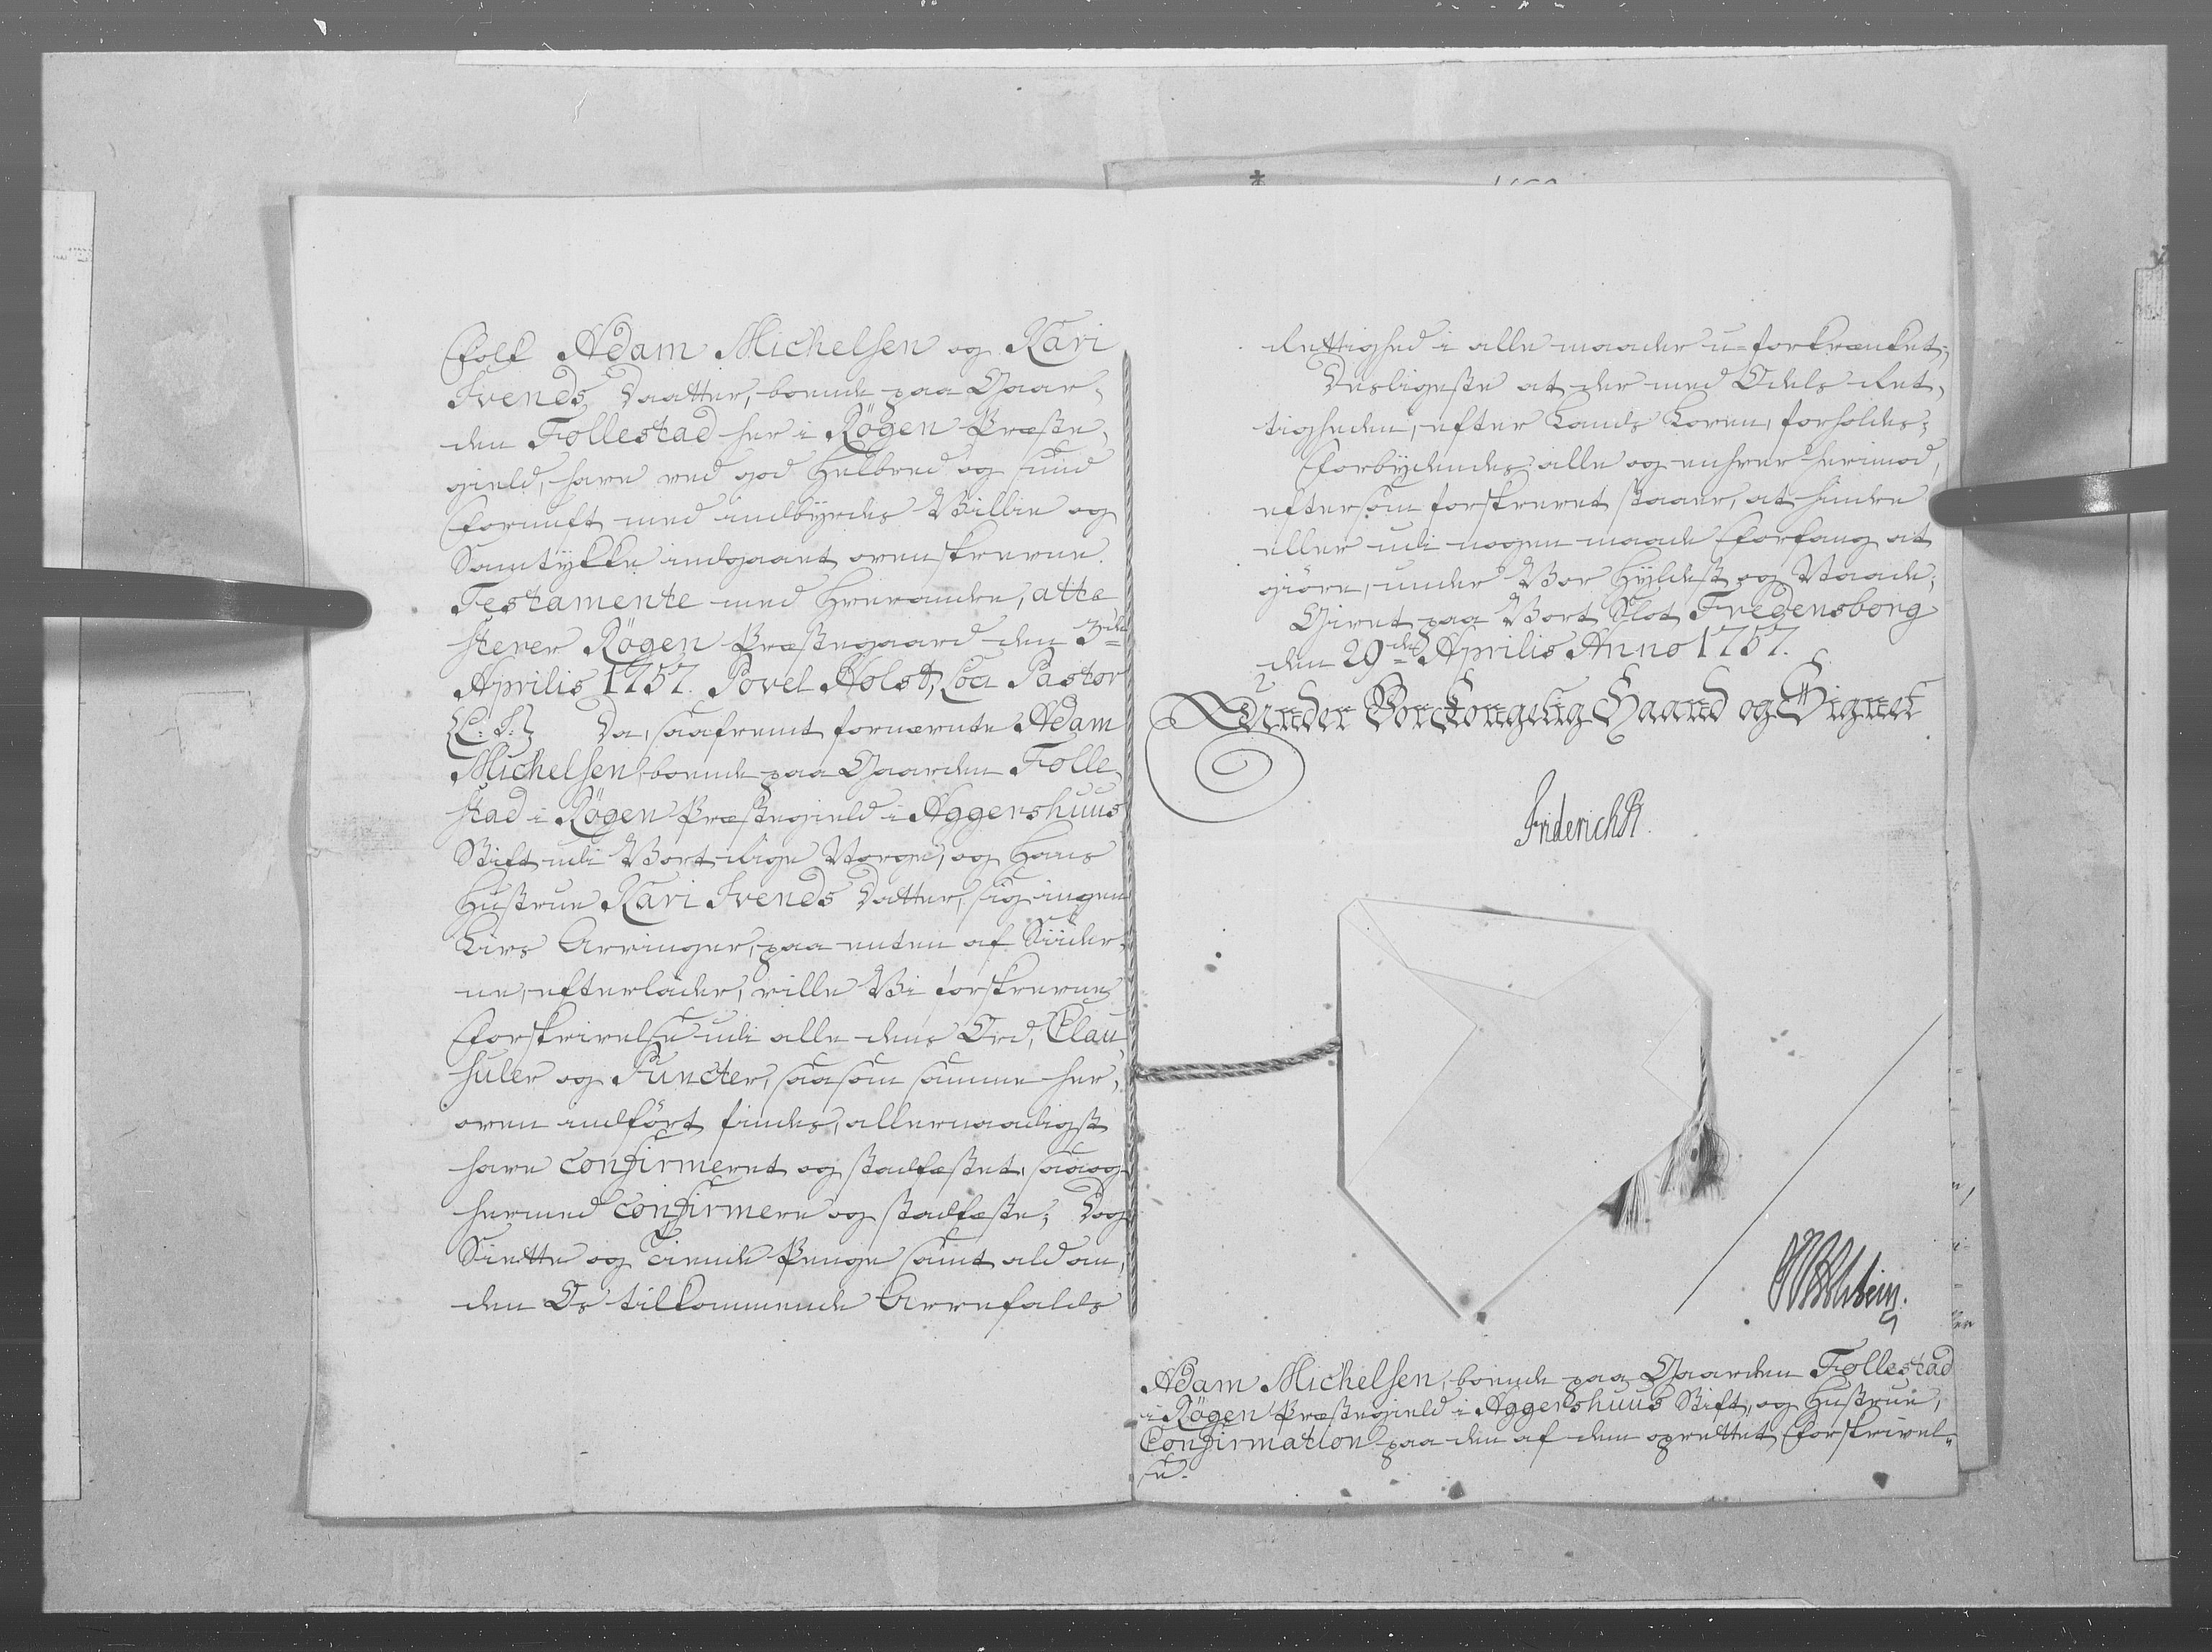 Folk Adam Michelsen og Kari
Svends Daatter, boende paa Gaar-
den Follestad her i Rögen Præste-
gield, have ved god Helbred og sund
Fornuft med indbyrdes Villie og
Samtykke indgaaet ovenskrevne
Testamente med hverandre, atte-
sterer Rögen Præstegaard den 3die
Aprilis 1757. Povel Holst, Loci Pastor
(L: S:) Da, saafremt fornævnte Adam
Michelsen, boende paa Gaarden Folle-
stad i Rögen Præstegield i Aggershuus
Stift udi Vort Rige Norge, og Hans
Hustrue Kari Svends Datter, sig ingen
Livs Arvinger, paa enten af Siider-
ne, efterlader, ville Vi forskrevne
Forskrivelse udi alle dens Ord, Clau-
suler og Puncter, saasom samme her-
oven indfört findes, allernaadigst
have confirmeret og stadfæstet, saa og
hermed confirmere og stadfæste; Dog
Siette og Tiende Penge samt ald an-
den Os tilkommende Arvefalds
Rettighed i alle maader u-forkrænket;
Desligeste at der med Odels Ret-
tigheden, efter Lands Loven, forholdes;
Forbydendes alle og enhver herimod,
eftersom forskrevet staaer, at hindre
eller udi nogen maade Forfang at
giöre, under Vor Hyldest og Naade;
Givet paa Vort Slot Fredensborg
den 29de Aprilis Anno 1757.
Under Vor Kongelig Haand og Signet
Friderich R.
Adam Michelsen, boende paa Gaarden Follestad
i Rögen Præstegield i Aggershuus Stift, og Hustrue,
Confirmation paa den af dem oprettet Forskrivel-
se.